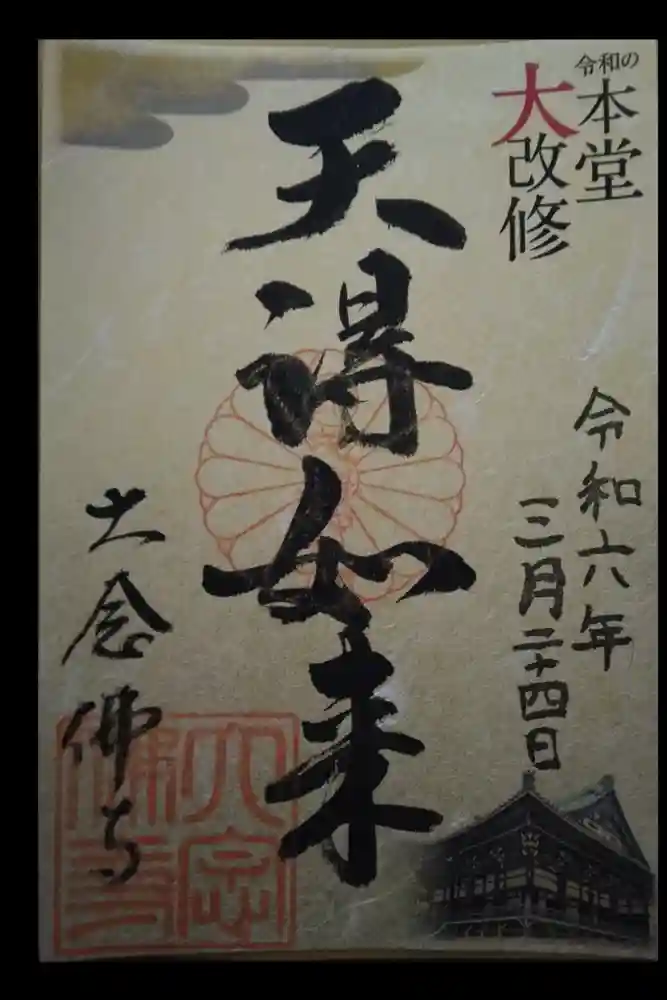 令和の
本堂
大改修
令和六年
三月二十四日
天得如来
大念佛寺
大念
佛寺